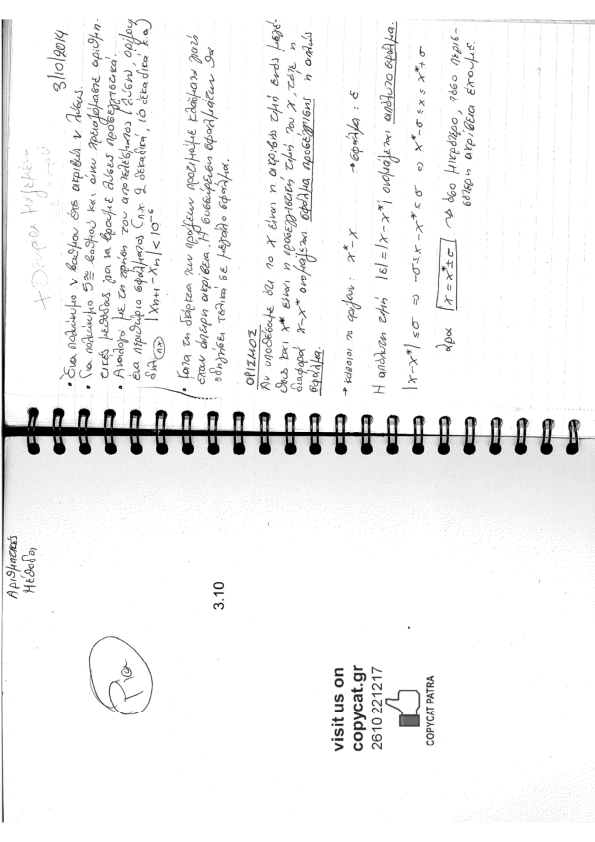 Αριθμητικές
Μέθοδοι
3.10
visit us on
copycat.gr
2610 221217
COPYCAT PATRA
3/10/2014
• Ένα πολυώνυμο ν βαθμού έχει ακριβώς ν λύσεις.
• Για πολυώνυμο 5ου βαθμού και άνω χρειαζόμαστε αριθμη-
τικές μεθόδους για να βρούμε λύσεις προσεγγιστικά.
• Αναλόγως με τη χρήση του αποτελέσματος (λύση) ορίζουμε
ένα περιθώριο σφάλματος (π.χ. 2 δεκαδικά, 10 δεκαδικά κ.α)
δηλ πχ |xn+1 - xn| < 10^-6
• Κατά τη διάρκεια των πράξεων προτιμάμε κλάσματα γιατί
έχουν άπειρη ακρίβεια. Η συσσώρευση σφαλμάτων θα
οδηγήσει τελικά σε μεγάλο σφάλμα.
ΟΡΙΣΜΟΣ
Αν υποθέσουμε ότι το x είναι η ακριβής τιμή ενός μεγέ-
θους και x* είναι η προσεγγιστική τιμή του x, τότε η
διαφορά x-x* ονομάζεται σφάλμα προσέγγισης ή απλώς
σφάλμα.
→ κάποιοι το ορίζουν: x*-x → σφάλμα: ε
Η απόλυτη τιμή |ε|=|x-x*| ονομάζεται απόλυτο σφάλμα.
|x-x*| ≤ σ ⇒ -σ ≤ x-x* ≤ σ ⇒ x*-σ ≤ x ≤ x*+σ
άρα x = x* ± σ → όσο μικρότερο, τόσο περισ-
σότερη ακρίβεια έχουμε.